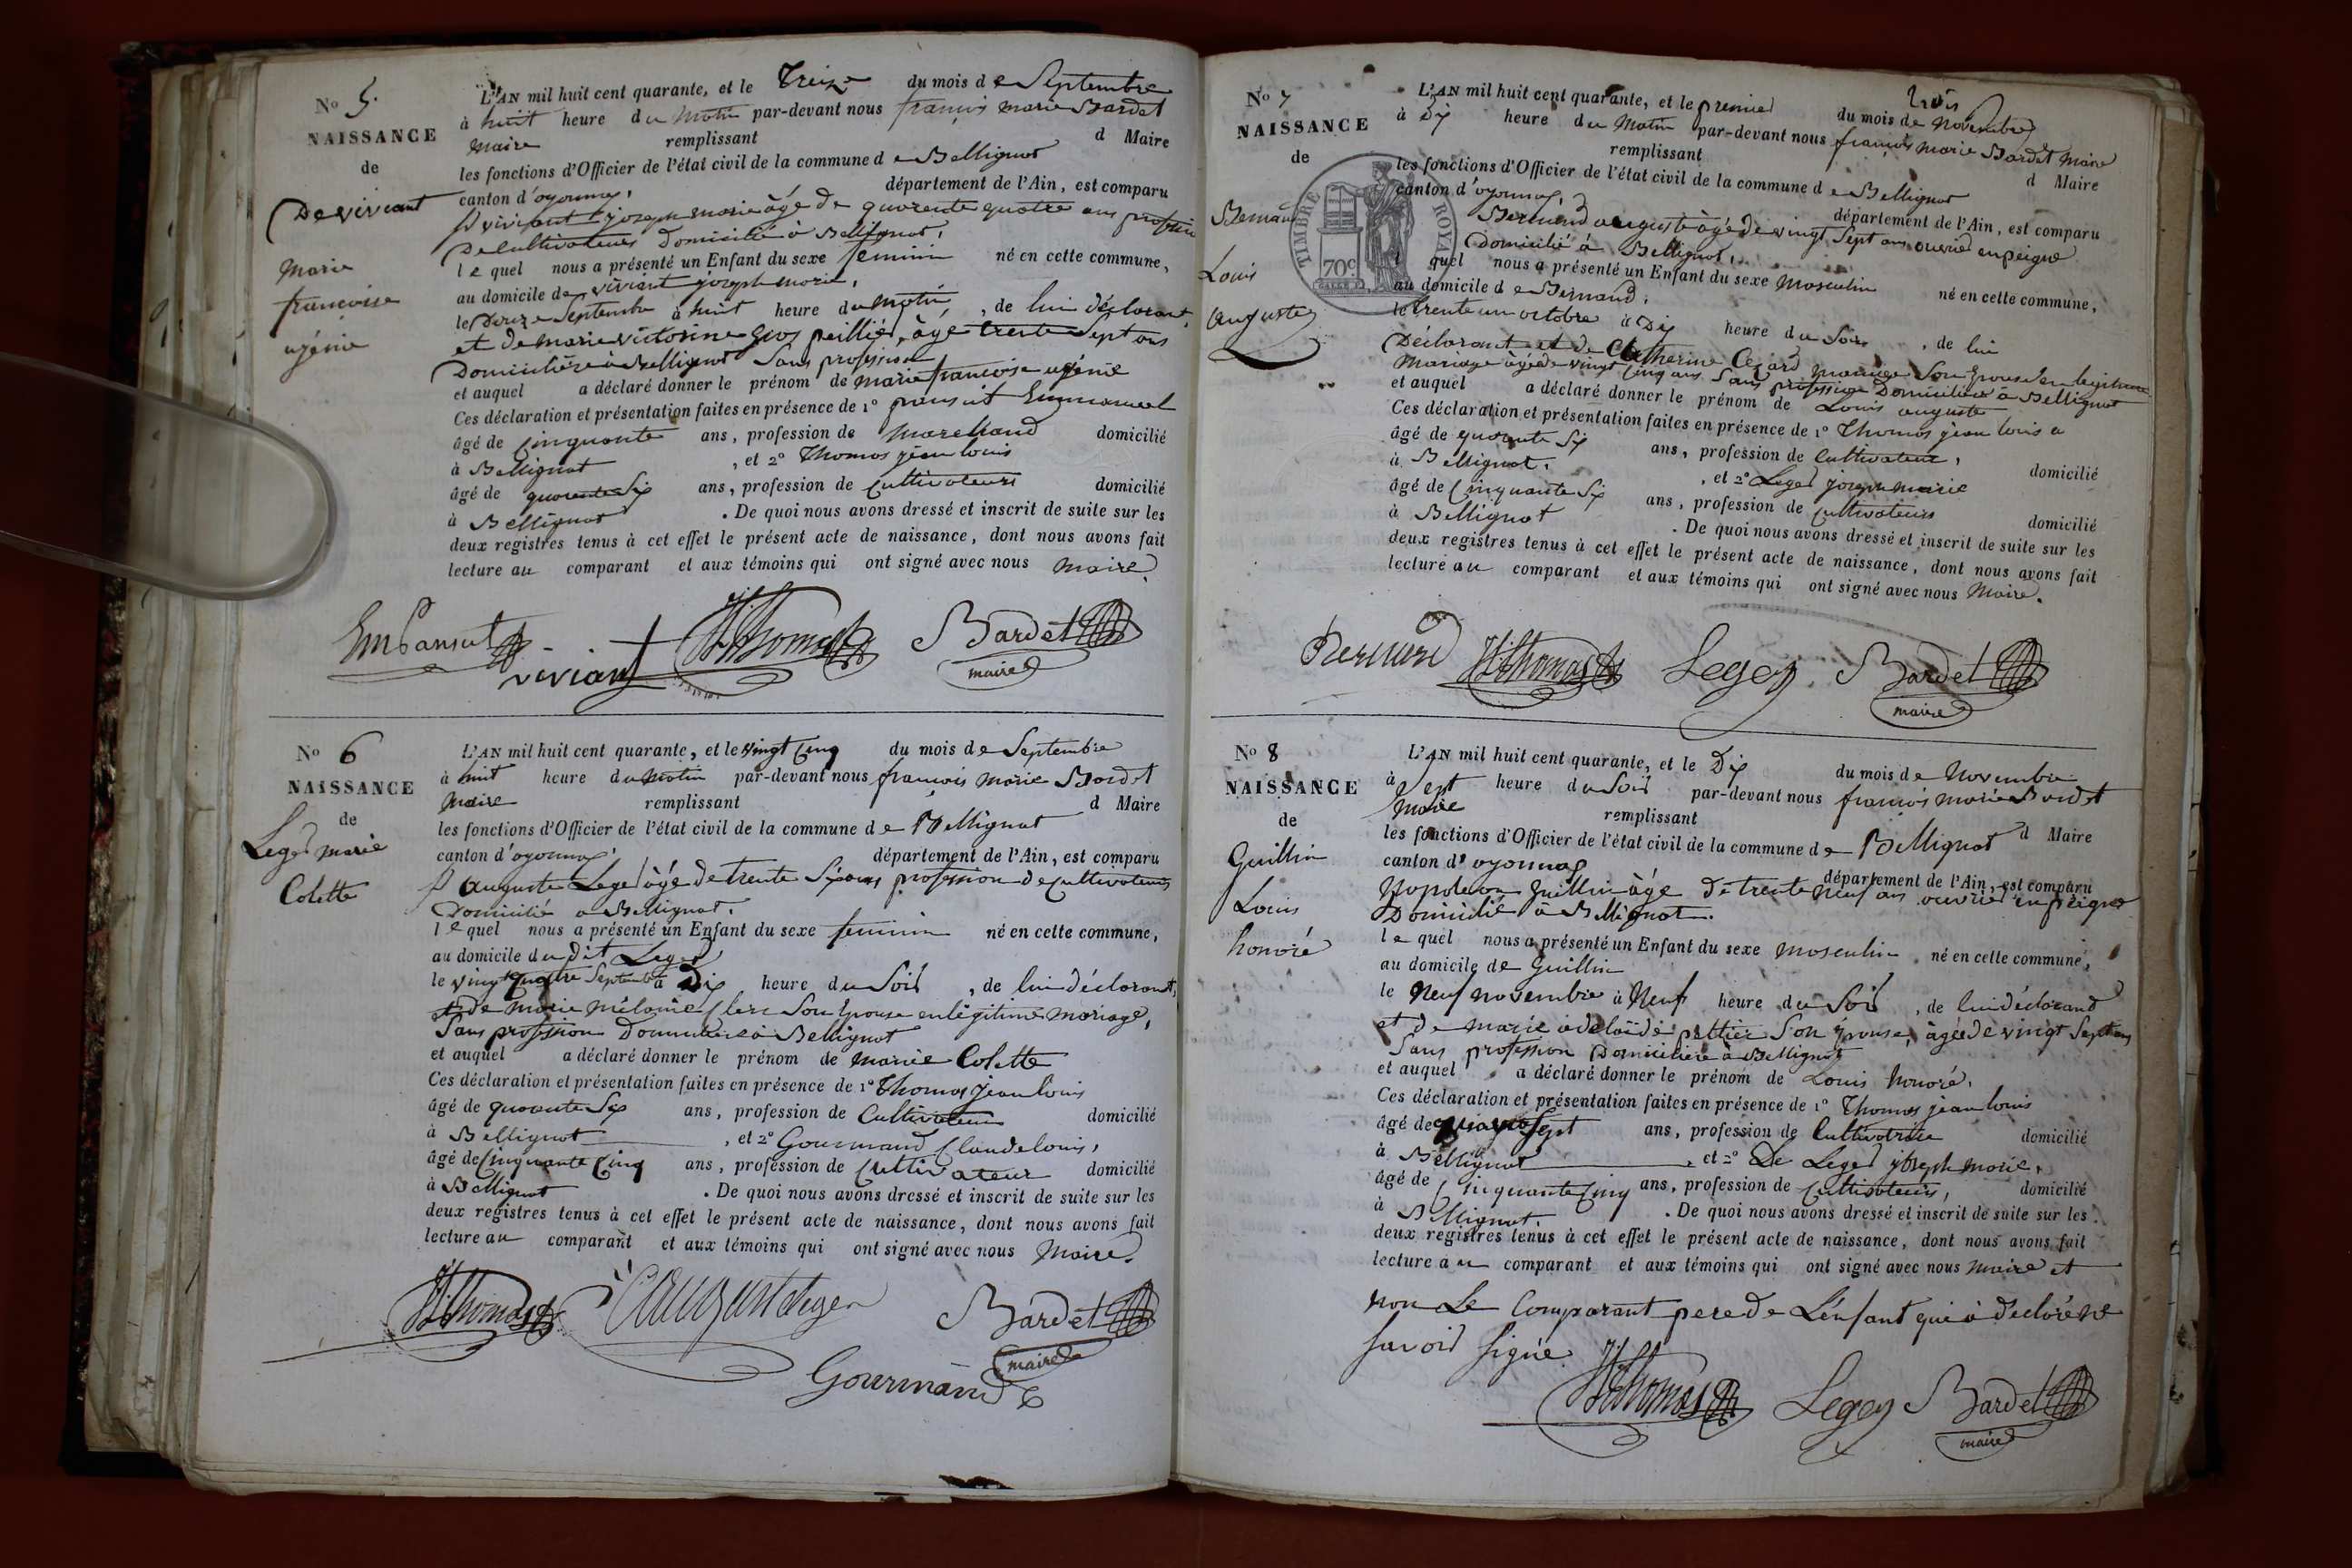 N° 5.
NAISSANCE
de
De viviant
Marie
francoise
ugénie
L'AN mil huit cent quarante, et le Treize du mois de Septembre
à huit heure du Matin par-devant nous françois marie Bardet
Maire remplissant d Maire
les fonctions d'Officier de l'état civil de la commune de Bellignat
canton d'oyonnax, département de l'Ain, est comparu
viviant joseph marie âgé de quarente quatre ans profession
De Cultivateur domicilié à Bellignat,
lequel nous a présenté un Enfant du sexe feminin né en cette commune,
au domicile de viviant joseph marie,
le Douze Septembre à huit heure du matin, de lui déclarant,
et de marie victorine Gros peillier, âgé trente Sept ans
Domicilière à Bellignat Sans profession
et auquel a déclaré donner le prénom de marie francoise ugénie
Ces déclaration et présentation faites en présence de 1° pansut Emmanuel
âgé de Cinquante ans, profession de Marchand domicilié
à Bellignat, et 2° Thomas jean louis
âgé de quarente Six ans, profession de Cultivateurs domicilié
à Bellignat. De quoi nous avons dressé et inscrit de suite sur les
deux registres tenus à cet effet le présent acte de naissance, dont nous avons fait
lecture au comparant et aux témoins qui ont signé avec nous Maire.
Em Pansut viviant Thomas Bardet
maire
N° 6
NAISSANCE
de
Leger marie
Colette
L'AN mil huit cent quarante, et le vingt Cinq du mois de Septembre
à huit heure du Matin par-devant nous françois Marie Bardet
Maire remplissant d Maire
les fonctions d'Officier de l'état civil de la commune de Bellignat
canton d'oyonnax, département de l'Ain, est comparu
auguste Leger âgé de trente Six ans profession de Cultivateurs
Domicilié à Bellignat.
lequel nous a présenté un Enfant du sexe feminin né en cette commune,
au domicile du dit Leger
le vingt quatre Septembre à Dix heure du Soir, de lui déclarant,
et de marie Mélanie Clerc Son Epouse en légitime mariage,
Sans profession Domicilière à Bellignat
et auquel a déclaré donner le prénom de marie Colette
Ces déclaration et présentation faites en présence de 1° Thomas jean louis
âgé de quarante Six ans, profession de Cultivateur domicilié
à Bellignat, et 2° Gourmand Claude louis,
âgé de Cinquante Cinq ans, profession de Cultivateur domicilié
à Bellignat. De quoi nous avons dressé et inscrit de suite sur les
deux registres tenus à cet effet le présent acte de naissance, dont nous avons fait
lecture au comparant et aux témoins qui ont signé avec nous Maire.
Thomas august leger Bardet
maire
Gourmand
N° 7
NAISSANCE
de
Bernard
Louis
Auguste
TIMBRE ROYAL
70c
trois
L'AN mil huit cent quarante, et le premier du mois de Novembre
à Dix heure du Matin par-devant nous françois Marie Bardet Maire
remplissant d Maire
les fonctions d'Officier de l'état civil de la commune de Bellignat
canton d'oyonnax, département de l'Ain, est comparu
Bernard auguste âgé de vingt Sept ans ouvrier en peigne
Domicilié à Bellignat,
lequel nous a présenté un Enfant du sexe Masculin né en cette commune,
au domicile de Bernard,
le trente un octobre à Dix heure du Soir, de lui
Déclarant et de Catherine Cezard Son Epouse en legitime
Mariage âgée de vingt Cinq ans Sans profession Domicilière à Bellignat
et auquel a déclaré donner le prénom de Louis auguste
Ces déclaration et présentation faites en présence de 1° Thomas jean louis
âgé de quarante Six ans, profession de Cultivateur, domicilié
à Bellignat, et 2° Leger joseph marie
âgé de Cinquante Six ans, profession de Cultivateurs domicilié
à Bellignat. De quoi nous avons dressé et inscrit de suite sur les
deux registres tenus à cet effet le présent acte de naissance, dont nous avons fait
lecture au comparant et aux témoins qui ont signé avec nous Maire.
Bernard Thomas Leger Bardet
maire
N° 8
NAISSANCE
de
Guillin
Louis
honoré
L'AN mil huit cent quarante, et le Dix du mois de Novembre
à Sept heure du Soir par-devant nous françois Marie Bardet
Maire remplissant d Maire
les fonctions d'Officier de l'état civil de la commune de Bellignat
canton d'oyonnax département de l'Ain, est comparu
Napoleon Guillin âgé de trente Neuf ans ouvrier en peigne
Domicilié à Bellignat.
lequel nous a présenté un Enfant du sexe masculin né en cette commune,
au domicile de Guillin
le Neuf novembre à Neuf heure du Soir, de lui déclarand
et de marie adelaïde peltier Son Epouse, âgée de vingt Sept ans
Sans profession Domicilière à Bellignat
et auquel a déclaré donner le prénom de Louis honoré.
Ces déclaration et présentation faites en présence de 1° Thomas jean louis
âgé de Sept ans, profession de Cultivateur domicilié
à Bellignat, et 2° De Leger joseph marie,
âgé de Cinquante Cinq ans, profession de Cultivateurs, domicilié
à Bellignat. De quoi nous avons dressé et inscrit de suite sur les
deux registres tenus à cet effet le présent acte de naissance, dont nous avons fait
lecture au comparant et aux témoins qui ont signé avec nous Maire et
non Le Comparant pere de L'enfant qui à déclaré ne
Savoir Signé
Thomas Leger Bardet
maire